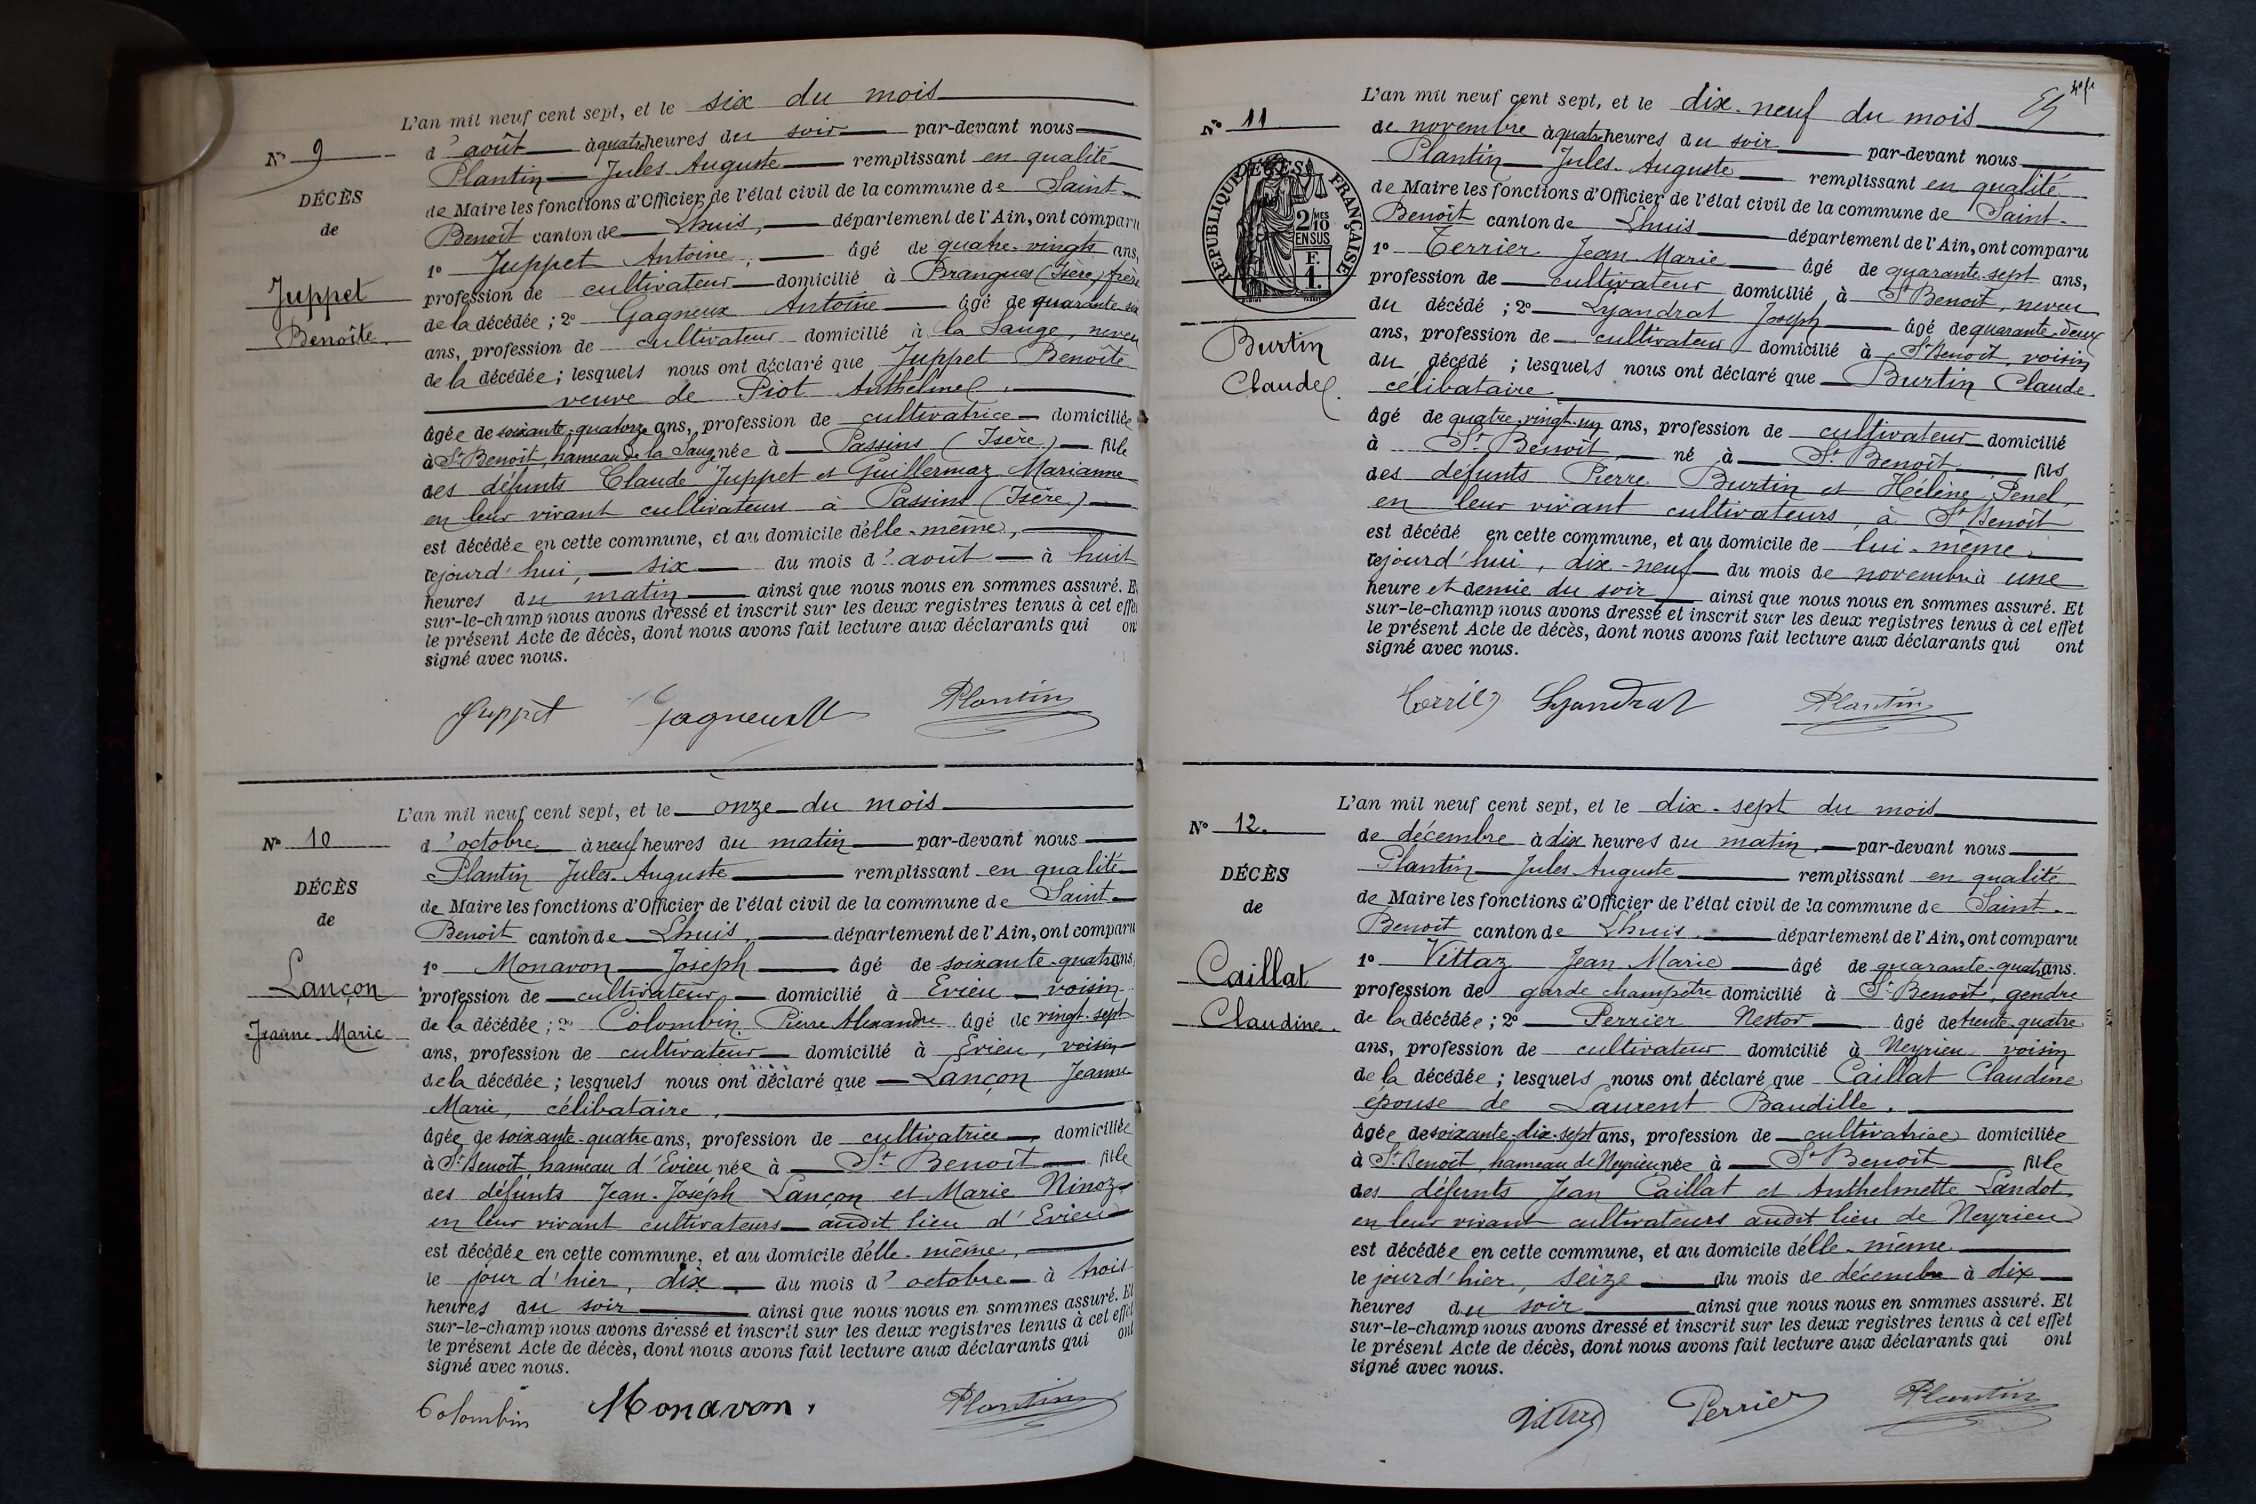 L'an mil neuf cent sept, et le six du mois
N° 9
d'août à quatre heures du soir par-devant nous
Plantin Jules Auguste remplissant en qualité
DÉCÈS
de Maire les fonctions d'Officier de l'état civil de la commune de Saint-
de
Benoît canton de Lhuis, département de l'Ain, ont comparu
1° Juppet Antoine, âgé de quatre-vingts ans,
Juppet
profession de cultivateur domicilié à Brangues (Isère) frère
Benoîte.
de la décédée ; 2° Gagneux Antoine âgé de quarante-six
ans, profession de cultivateur domicilié à la Sauge, neveu
de la décédée ; lesquels nous ont déclaré que Juppet Benoîte
veuve de Piot Anthelme,
âgée de soixante-quatorze ans, profession de cultivatrice domiciliée
à St Benoît, hameau de la Saug née à Passins (Isère) fille
des défunts Claude Juppet et Guillermaz Marianne
en leur vivant cultivateurs à Passins (Isère)
est décédée en cette commune, et au domicile d'elle-même,
cejourd'hui, six du mois d'août à huit
heures du matin ainsi que nous nous en sommes assuré. Et
sur-le-champ nous avons dressé et inscrit sur les deux registres tenus à cet effet
le présent Acte de décès, dont nous avons fait lecture aux déclarants qui ont
signé avec nous.
Juppet Gagneux Plantin
L'an mil neuf cent sept, et le onze du mois
N° 10
d'octobre à neuf heures du matin par-devant nous
Plantin Jules Auguste remplissant en qualité
DÉCÈS
de Maire les fonctions d'Officier de l'état civil de la commune de Saint-
de
Benoît canton de Lhuis, département de l'Ain, ont comparu
1° Monavon Joseph âgé de soixante-quatre ans,
Lançon
profession de cultivateur domicilié à Evieu voisin
de la décédée ; 2° Colombin Pierre Alexandre âgé de vingt-sept
Jeanne-Marie
ans, profession de cultivateur domicilié à Evieu, voisin
de la décédée ; lesquels nous ont déclaré que Lançon Jeanne
Marie, célibataire,
âgée de soixante-quatre ans, profession de cultivatrice domiciliée
à St Benoît, hameau d'Evieu née à St Benoît fille
des défunts Jean-Joseph Lançon et Marie Ninoz
en leur vivant cultivateurs audit lieu d'Evieu
est décédée en cette commune, et au domicile d'elle-même,
le jour d'hier, dix du mois d'octobre à trois
heures du soir ainsi que nous nous en sommes assuré. Et
sur-le-champ nous avons dressé et inscrit sur les deux registres tenus à cet effet
le présent Acte de décès, dont nous avons fait lecture aux déclarants qui ont
signé avec nous.
Colombin Monavon. Plantin
L'an mil neuf cent sept, et le dix-neuf du mois
N° 11
de novembre à quatre heures du soir par-devant nous
Plantin Jules-Auguste remplissant en qualité
DÉCÈS
RÉPUBLIQUE FRANÇAISE
2/10 MES EN SUS
F. 1.
de Maire les fonctions d'Officier de l'état civil de la commune de Saint-
Benoît canton de Lhuis département de l'Ain, ont comparu
1° Terrier Jean Marie âgé de quarante-sept ans,
profession de cultivateur domicilié à St Benoît, neveu
du décédé ; 2° Lyandrat Joseph âgé de quarante-deux
Burtin
ans, profession de cultivateur domicilié à St Benoît, voisin
du décédé ; lesquels nous ont déclaré que Burtin Claude
Claude.
célibataire
âgé de quatre-vingt-un ans, profession de cultivateur domicilié
à St Benoît, né à St Benoît fils
des défunts Pierre Burtin et Hélène Penel,
en leur vivant cultivateurs, à St Benoît
est décédé en cette commune, et au domicile de lui-même.
cejourd'hui, dix-neuf du mois de novembre à une
heure et demie du soir ainsi que nous nous en sommes assuré. Et
sur-le-champ nous avons dressé et inscrit sur les deux registres tenus à cet effet
le présent Acte de décès, dont nous avons fait lecture aux déclarants qui ont
signé avec nous.
Terrier Lyandrat Plantin
L'an mil neuf cent sept, et le dix-sept du mois
N° 12.
de décembre à dix heures du matin, par-devant nous
Plantin Jules Auguste remplissant en qualité
DÉCÈS
de Maire les fonctions d'Officier de l'état civil de la commune de Saint-
de
Benoît canton de Lhuis département de l'Ain, ont comparu
1° Vittaz Jean Marie âgé de quarante-quatre ans.
Caillat
profession de garde champêtre domicilié à St Benoît, gendre
Claudine.
de la décédée ; 2° Perrier Nestor âgé de trente-quatre
ans, profession de cultivateur domicilié à Neyrieu voisin
de la décédée ; lesquels nous ont déclaré que Caillat Claudine
épouse de Laurent Baudille,
âgée de soixante-dix-sept ans, profession de cultivatrice domiciliée
à St Benoît, hameau de Neyrieu née à St Benoît fille
des défunts Jean Caillat et Anthelmette Landot
en leur vivant cultivateurs audit lieu de Neyrieu
est décédée en cette commune, et au domicile d'elle-même
le jour d'hier, seize du mois de décembre à dix
heures du soir ainsi que nous nous en sommes assuré. Et
sur-le-champ nous avons dressé et inscrit sur les deux registres tenus à cet effet
le présent Acte de décès, dont nous avons fait lecture aux déclarants qui ont
signé avec nous.
Vittaz Perrier Plantin